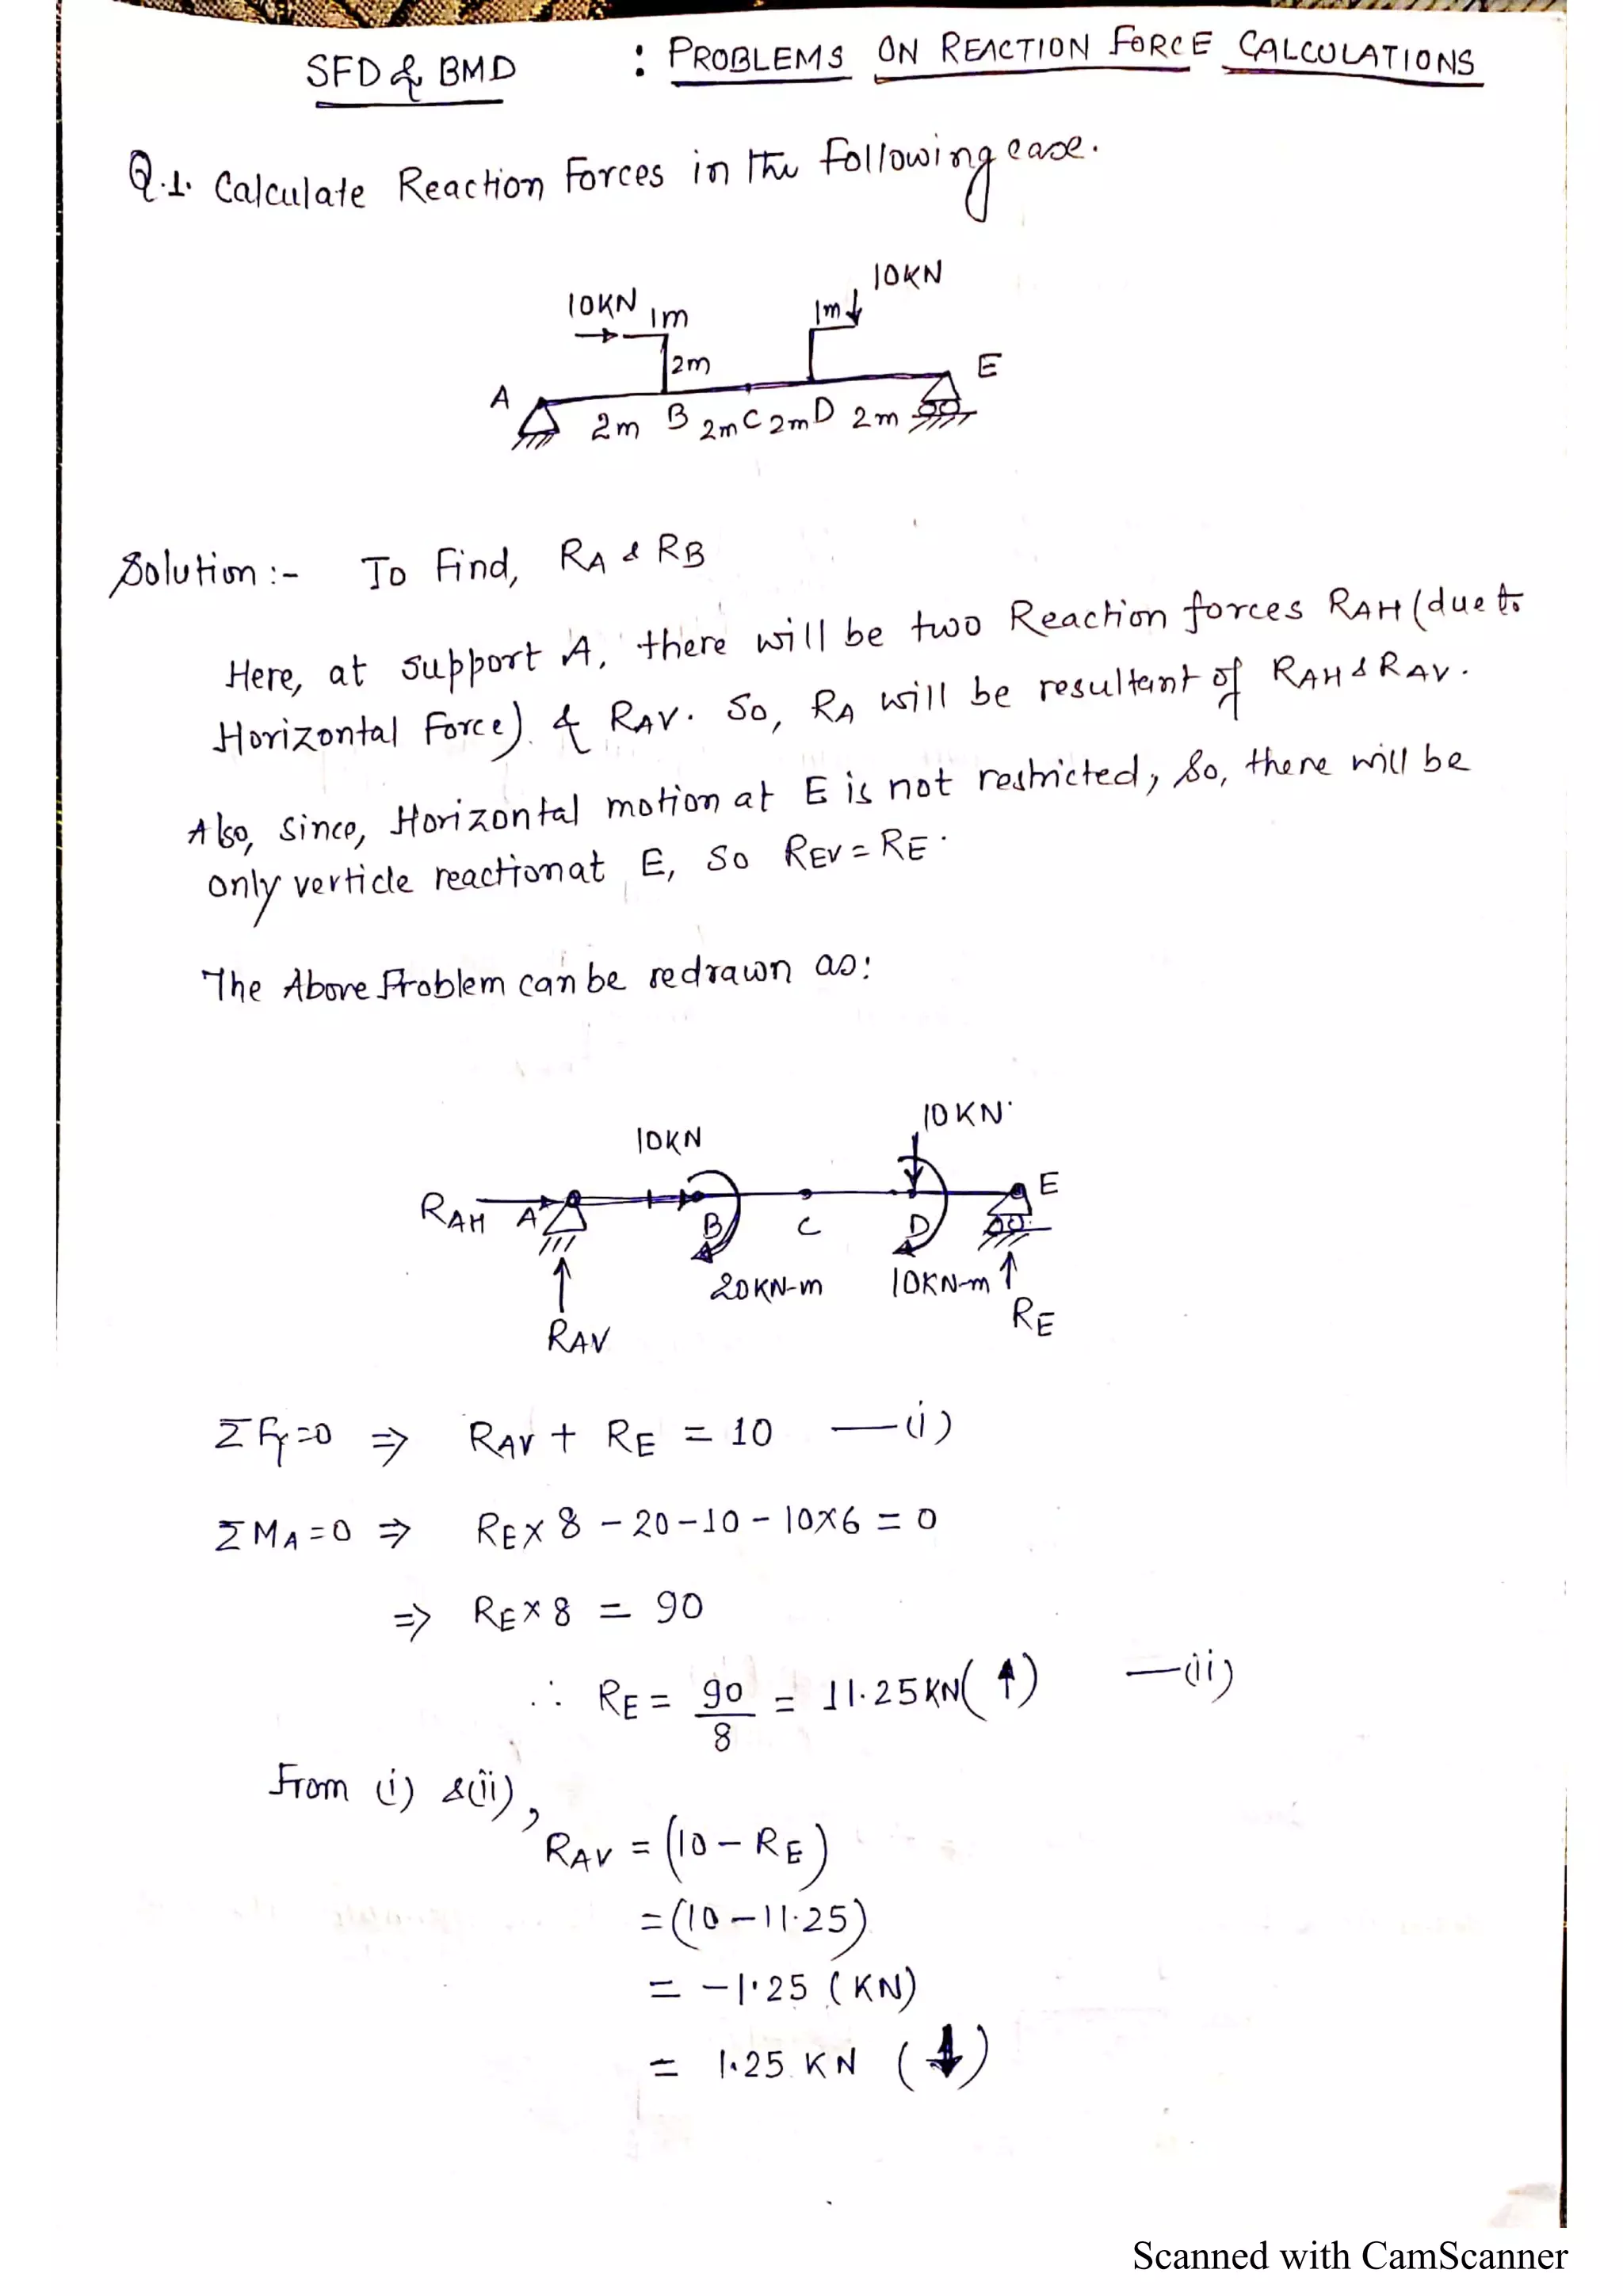 SFD & BMD : PROBLEMS ON REACTION FORCE CALCULATIONS
Q.1. Calculate Reaction Forces in the following case.
10KN
10KN 1m
1m
2m
A
E
2m B 2m C 2m D 2m
Solution :- To Find, RA & RB
Here, at support A, there will be two Reaction forces RAH (due to
Horizontal Force) & RAV. So, RA will be resultant of RAH & RAV.
Also, since, Horizontal motion at E is not restricted, So, there will be
only verticle reaction at E, So REV = RE.
The Above Problem can be redrawn as:
10KN
10KN
RAH A B C D E
20KN-m 10KN-m
RAV RE
ΣFy=0 ⇒ RAV + RE = 10 —(i)
ΣMA=0 ⇒ RE×8 - 20 - 10 - 10×6 = 0
⇒ RE×8 = 90
∴ RE = 90/8 = 11.25KN(↑) —(ii)
From (i) &(ii),
RAV = (10 - RE)
= (10 - 11.25)
= -1.25 (KN)
= 1.25 KN (↓)
Scanned with CamScanner